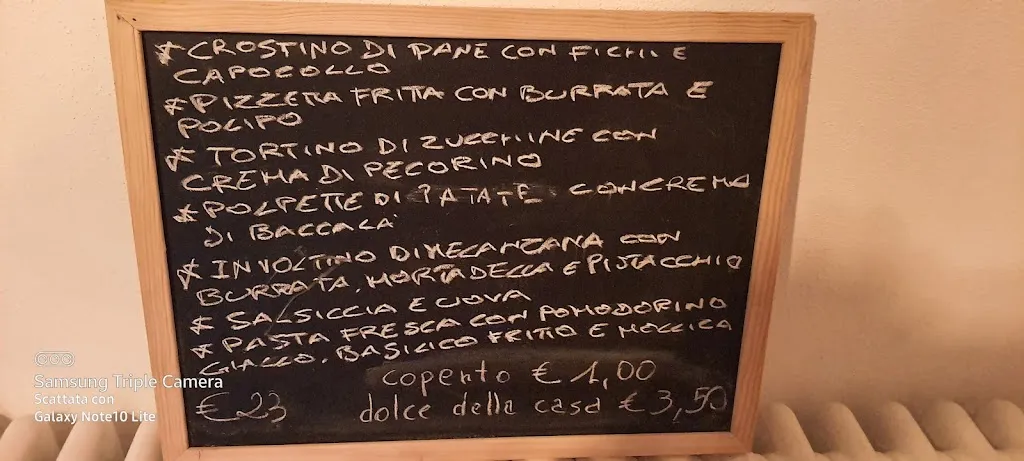 * CROSTINO DI PANE CON FICHI E
CAPOCOLLO
* PIZZETTA FRITTA CON BURRATA E
POLIPO
* TORTINO DI ZUCCHINE CON
CREMA DI PECORINO
* POLPETTE DI PATATE CON CREMA
DI BACCALÀ
* INVOLTINO DI MELANZANA CON
BURRATA, MORTADELLA E PISTACCHIO
* SALSICCIA E UOVA
* PASTA FRESCA CON POMODORINO
GIALLO, BASILICO FRITTO E MOLLICA
coperto € 1,00
€ 23 dolce della casa € 3,50
Samsung Triple Camera
Scattata con
Galaxy Note10 Lite